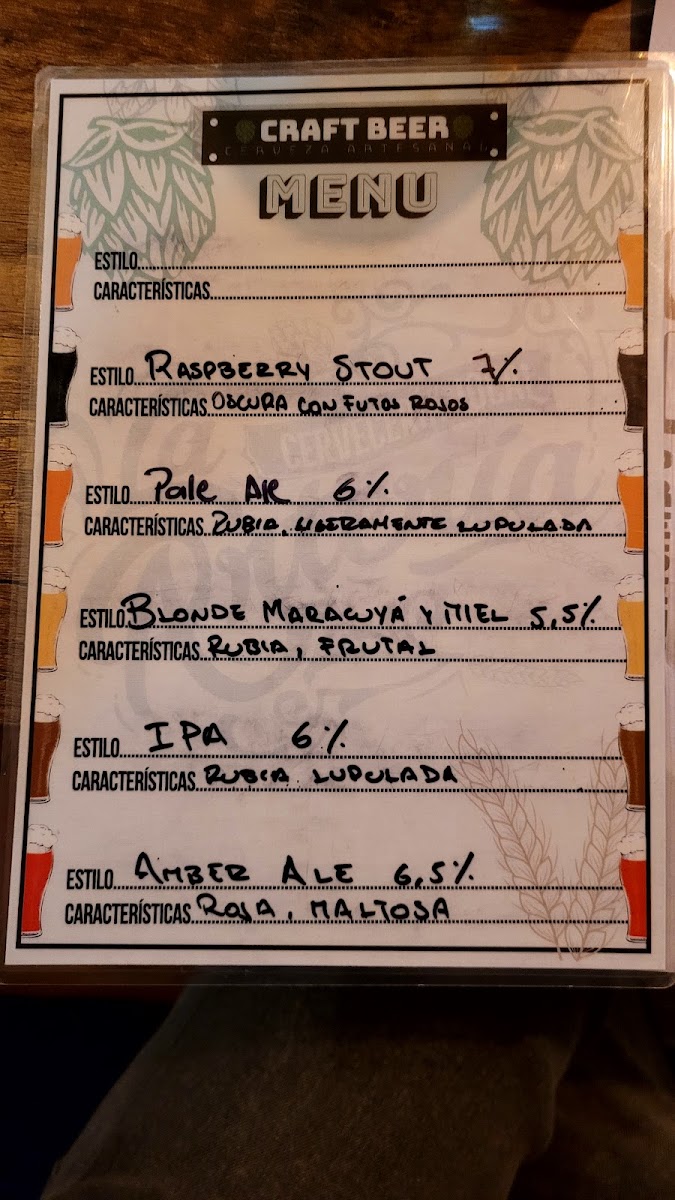 CRAFT BEER
CERVEZA ARTESANAL
MENU
ESTILO
CARACTERÍSTICAS
ESTILO RASPBERRY STOUT 7%
CARACTERÍSTICAS OSCURA CON FUTOS ROJOS
ESTILO Pale Ale 6%
CARACTERÍSTICAS RUBIA, LIGERAMENTE LUPULADA
ESTILO BLONDE MARACUYÁ Y MIEL 5,5%
CARACTERÍSTICAS RUBIA, FRUTAL
ESTILO IPA 6%
CARACTERÍSTICAS RUBIA LUPULADA
ESTILO AMBER ALE 6,5%
CARACTERÍSTICAS ROJA, MALTOSA